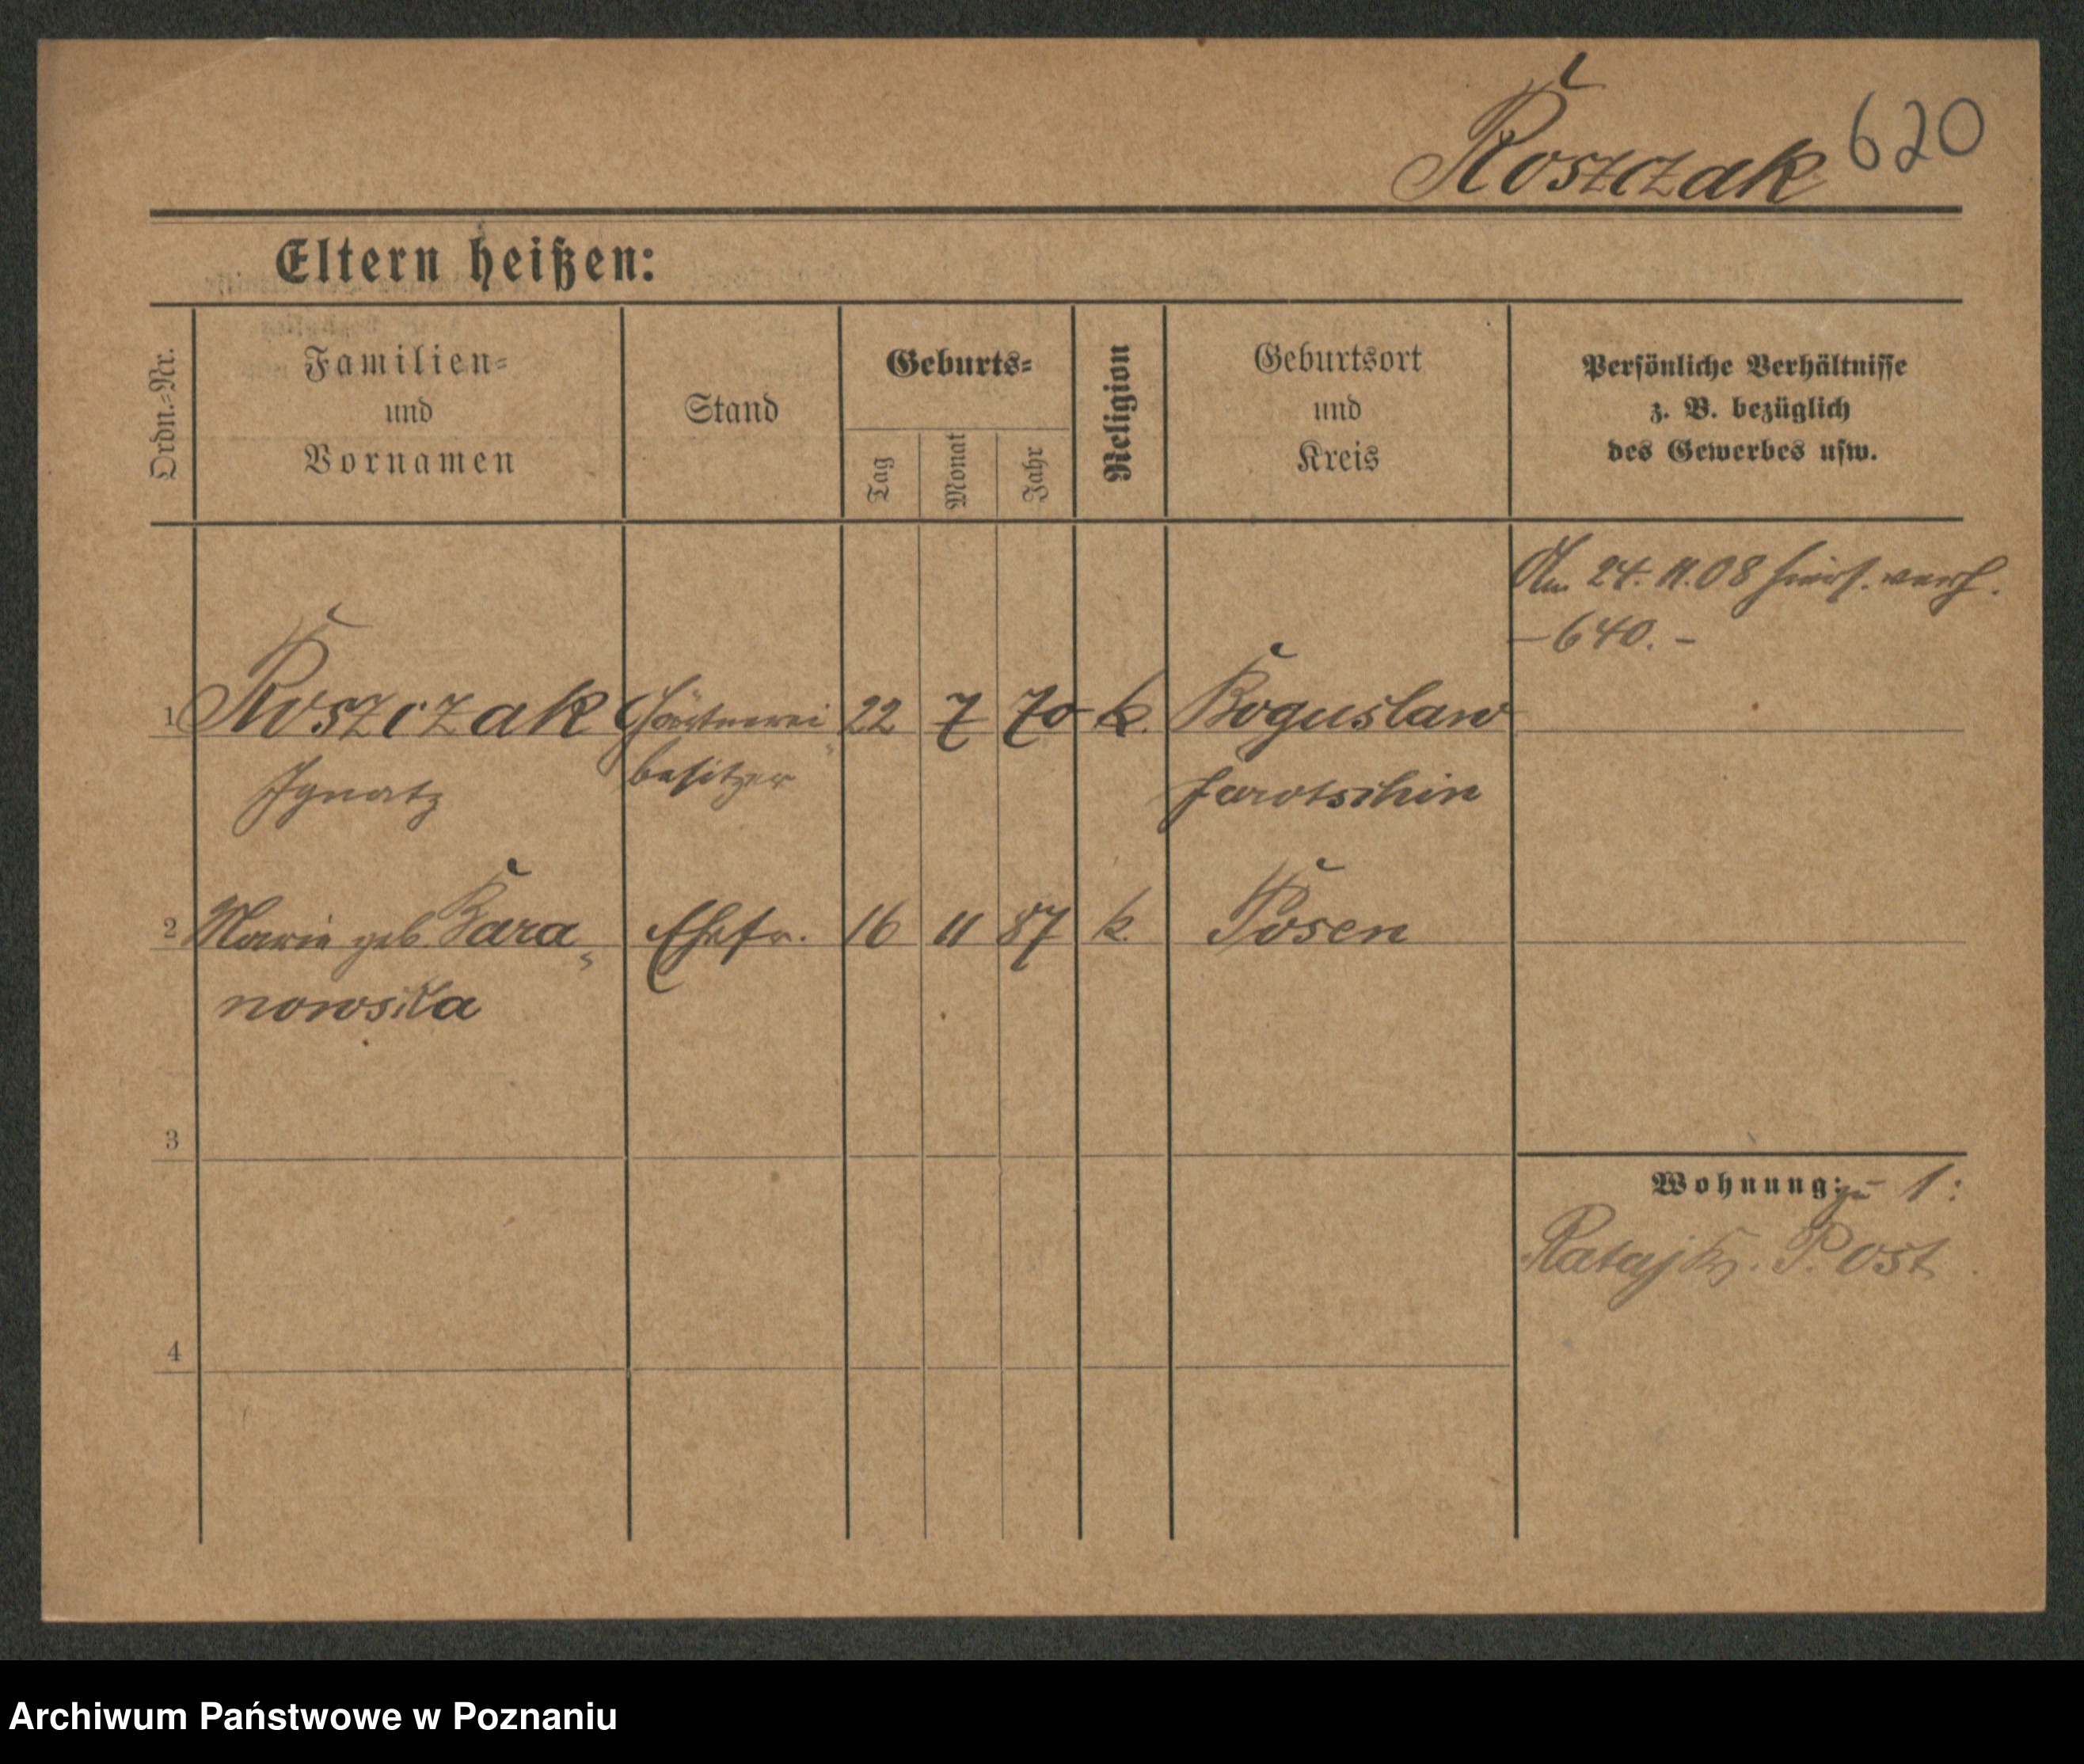 Roszczak 620
Eltern heißen:
Ordn.-Nr.
Familien-
und
Vornamen
Stand
Geburts-
Tag
Monat
Jahr
Religion
Geburtsort
und
Kreis
Persönliche Verhältnisse
z. B. bezüglich
des Gewerbes usw.
Am 24.11.08 hiers. verh.
- 640. -
1 Roszczak Gärtnerei- 22 7 70 k. Boguslaw
Ignatz besitzer Jarotschin
2 Marie geb. Bara- Ehefr. 16 11 87 k. Posen
nowska
3
Wohnung: zu 1:
Rataj P. Ost
4
Archiwum Państwowe w Poznaniu